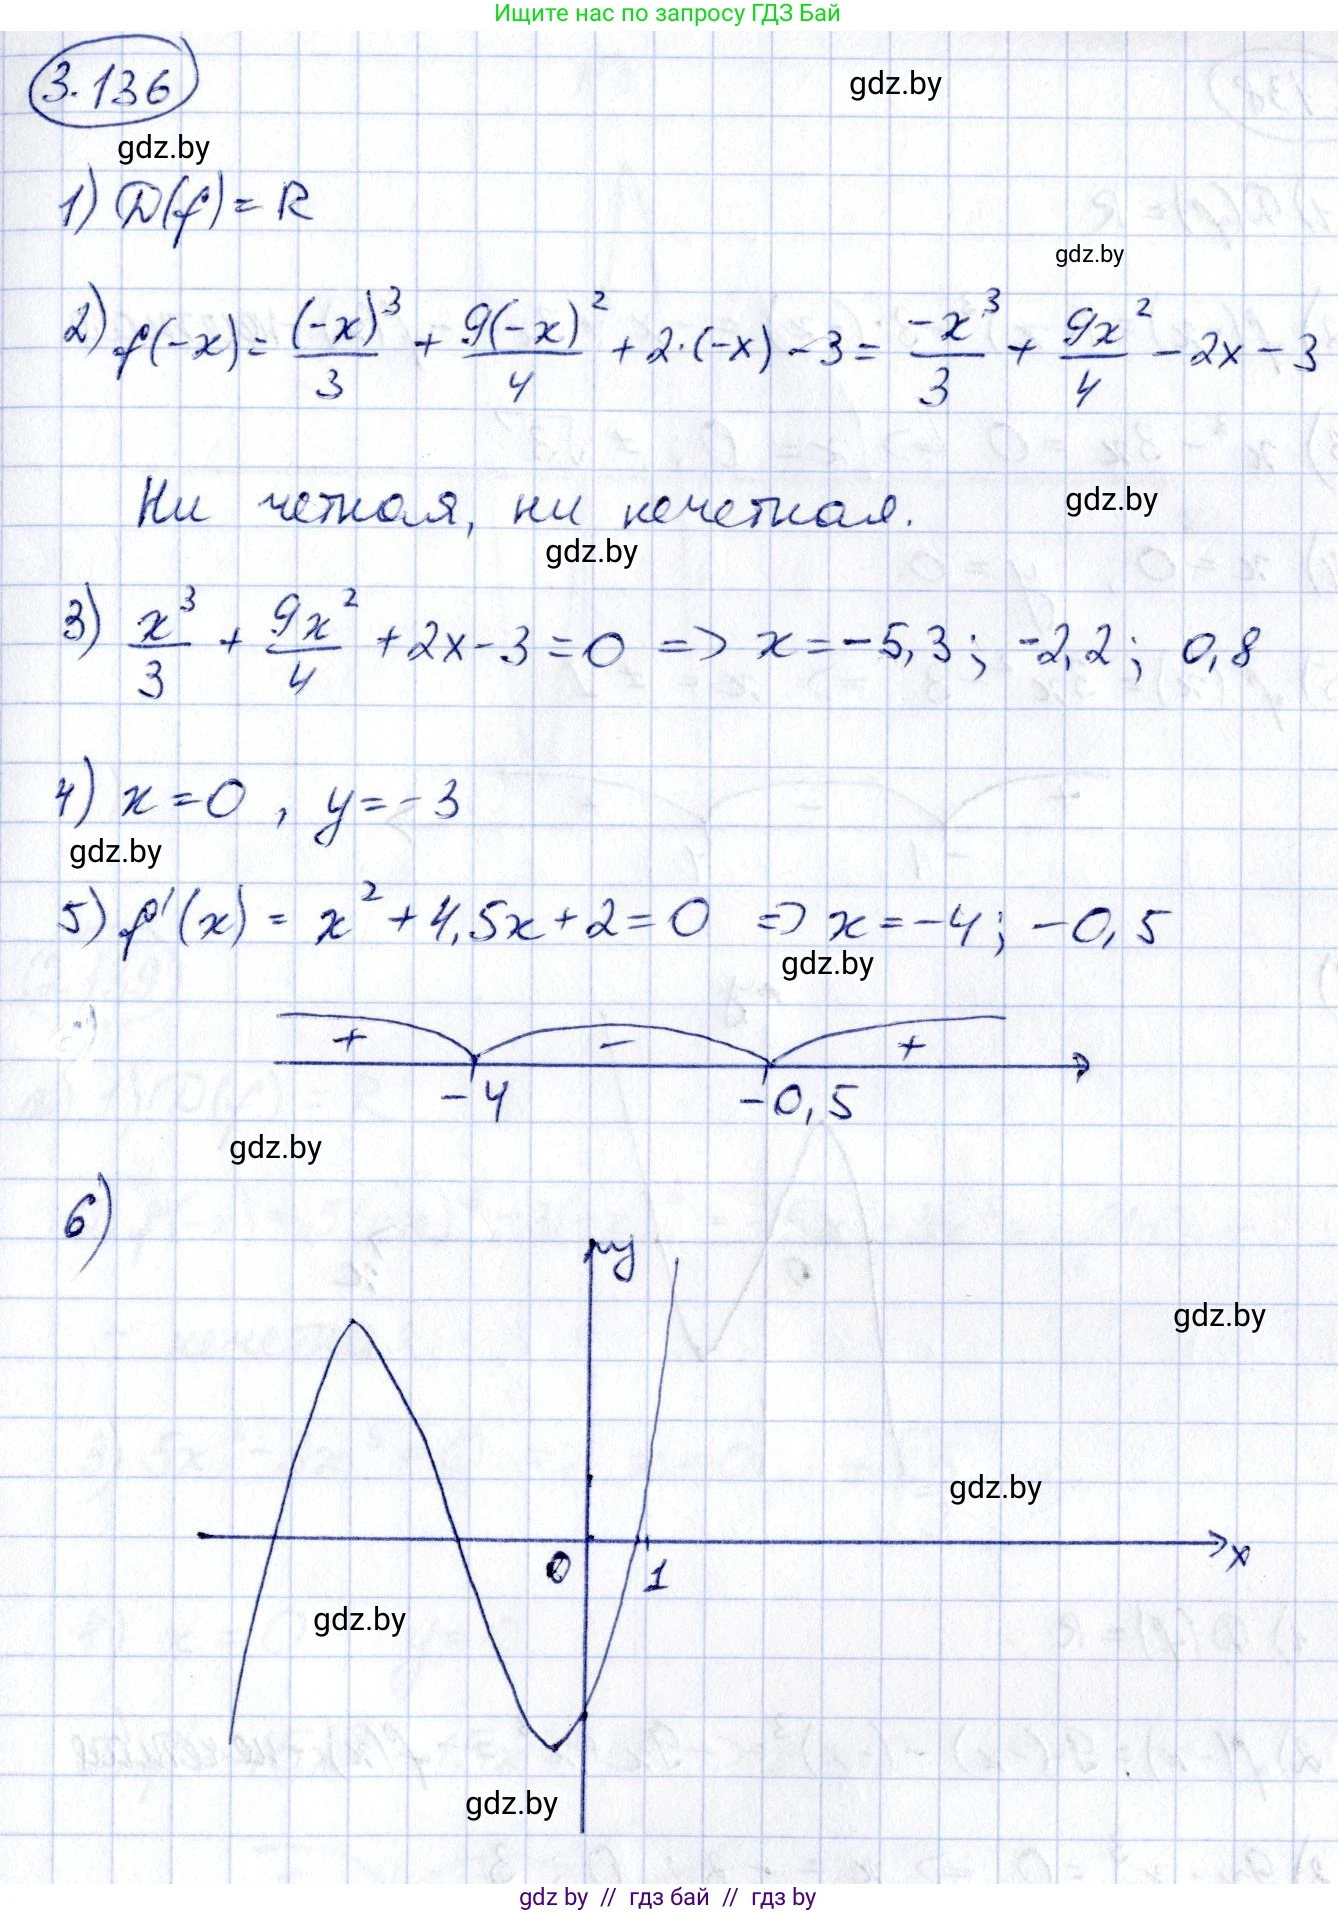 Ищите нас по запросу ГДЗ Бай
3.136
gdz.by
gdz.by
1) D(f) = R
gdz.by
2) f(-x) = (-x)³/3 + 9(-x)²/4 + 2·(-x) - 3 = -x³/3 + 9x²/4 - 2x - 3
Ни четная, ни нечетная.
gdz.by
gdz.by
3) x³/3 + 9x²/4 + 2x - 3 = 0 => x = -5,3; -2,2; 0,8
4) x = 0, y = -3
gdz.by
5) f'(x) = x² + 4,5x + 2 = 0 => x = -4; -0,5
gdz.by
+ - +
-4 -0,5
gdz.by
6)
y
gdz.by
gdz.by
0 1 x
gdz.by
gdz.by
gdz by // гдз бай // гдз by